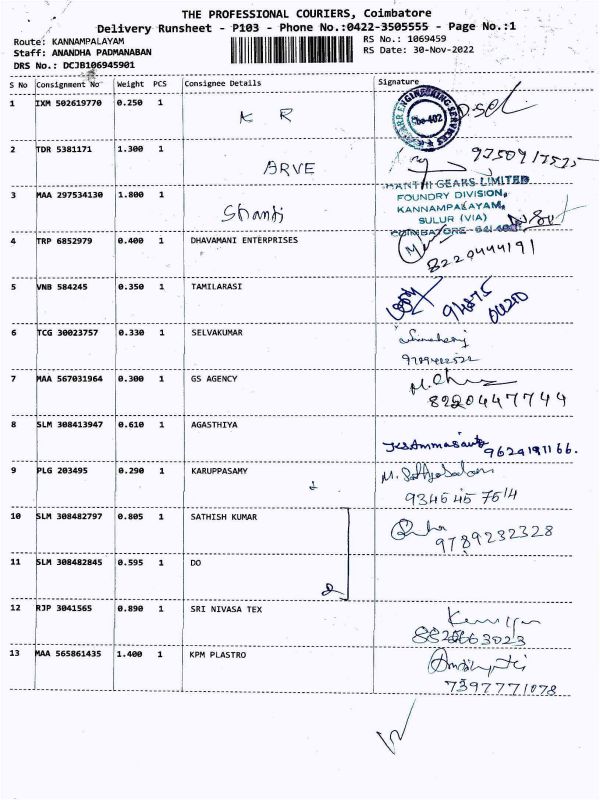 THE PROFESSIONAL COURIERS, Coimbatore
Delivery Runsheet - P103 - Phone No.:0422-3505555 - Page No.:1
Route: KANNAMPALAYAM
RS No.: 1069459
Staff: ANANDHA PADMANABAN
RS Date: 30-Nov-2022
DRS No.: DCJB106945901
S No Consignment No Weight PCS Consignee Details Signature
1 IXM 502619770 0.250 1 K R
2 TDR 5381171 1.300 1 ARVE
3 MAA 297534130 1.800 1 Shanti
SHANTHI GEARS LIMITED
FOUNDRY DIVISION,
KANNAMPALAYAM,
SULUR (VIA)
COIMBATORE
4 TRP 6852979 0.400 1 DHAVAMANI ENTERPRISES 8220444191
5 VNB 584245 0.350 1 TAMILARASI
6 TCG 30023757 0.330 1 SELVAKUMAR
7 MAA 567031964 0.300 1 GS AGENCY
8220447744
8 SLM 308413947 0.610 1 AGASTHIYA
9 PLG 203495 0.290 1 KARUPPASAMY
9345457514
10 SLM 308482797 0.805 1 SATHISH KUMAR
9789232328
11 SLM 308482845 0.595 1 DO
12 RJP 3041565 0.890 1 SRI NIVASA TEX
13 MAA 565861435 1.400 1 KPM PLASTRO
7397771078